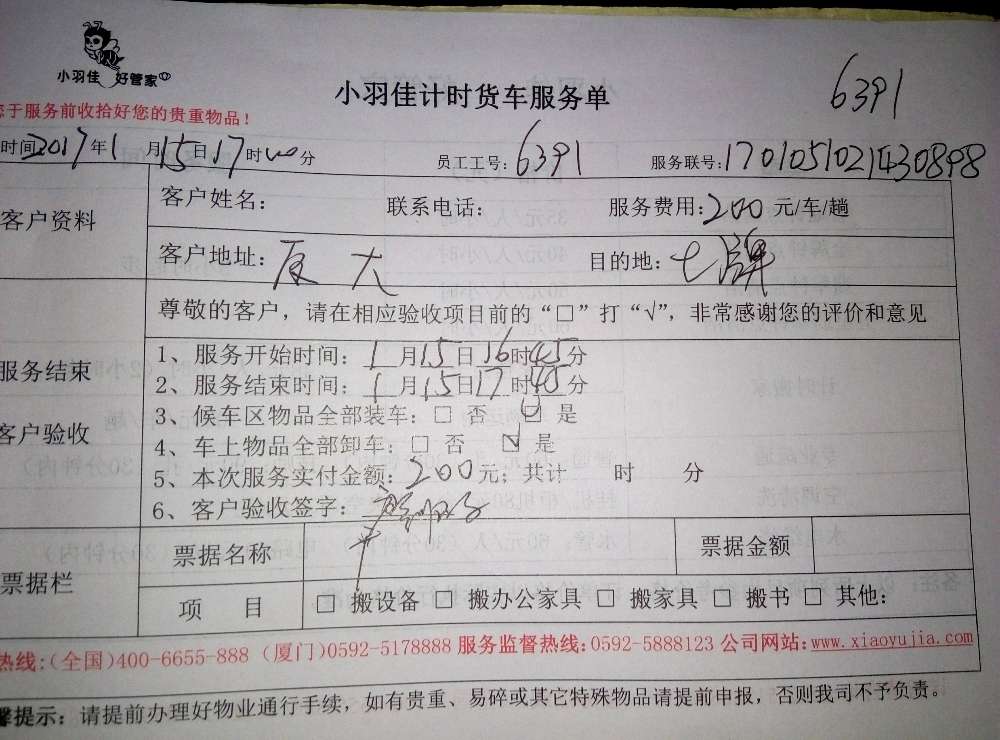 小羽佳 好管家
小羽佳计时货车服务单
6391
于服务前收拾好您的贵重物品！
时间2017年1月15日17时00分 员工工号：6391 服务联号：1701051021430898
客户资料
客户姓名： 联系电话： 服务费用：200元/车/趟
客户地址：厦大 目的地：七牌
尊敬的客户，请在相应验收项目前的“□”打“√”，非常感谢您的评价和意见
服务结束
客户验收
1、服务开始时间：1月15日16时45分
2、服务结束时间：1月15日17时45分
3、候车区物品全部装车：□ 否 ☑ 是
4、车上物品全部卸车：□ 否 ☑ 是
5、本次服务实付金额：200元；共计 时 分
6、客户验收签字：
票据栏
票据名称 票据金额
项 目 □ 搬设备 □ 搬办公家具 □ 搬家具 □ 搬书 □ 其他：
热线：(全国)400-6655-888 (厦门)0592-5178888 服务监督热线：0592-5888123 公司网站：www.xiaoyujia.com
馨提示：请提前办理好物业通行手续，如有贵重、易碎或其它特殊物品请提前申报，否则我司不予负责。